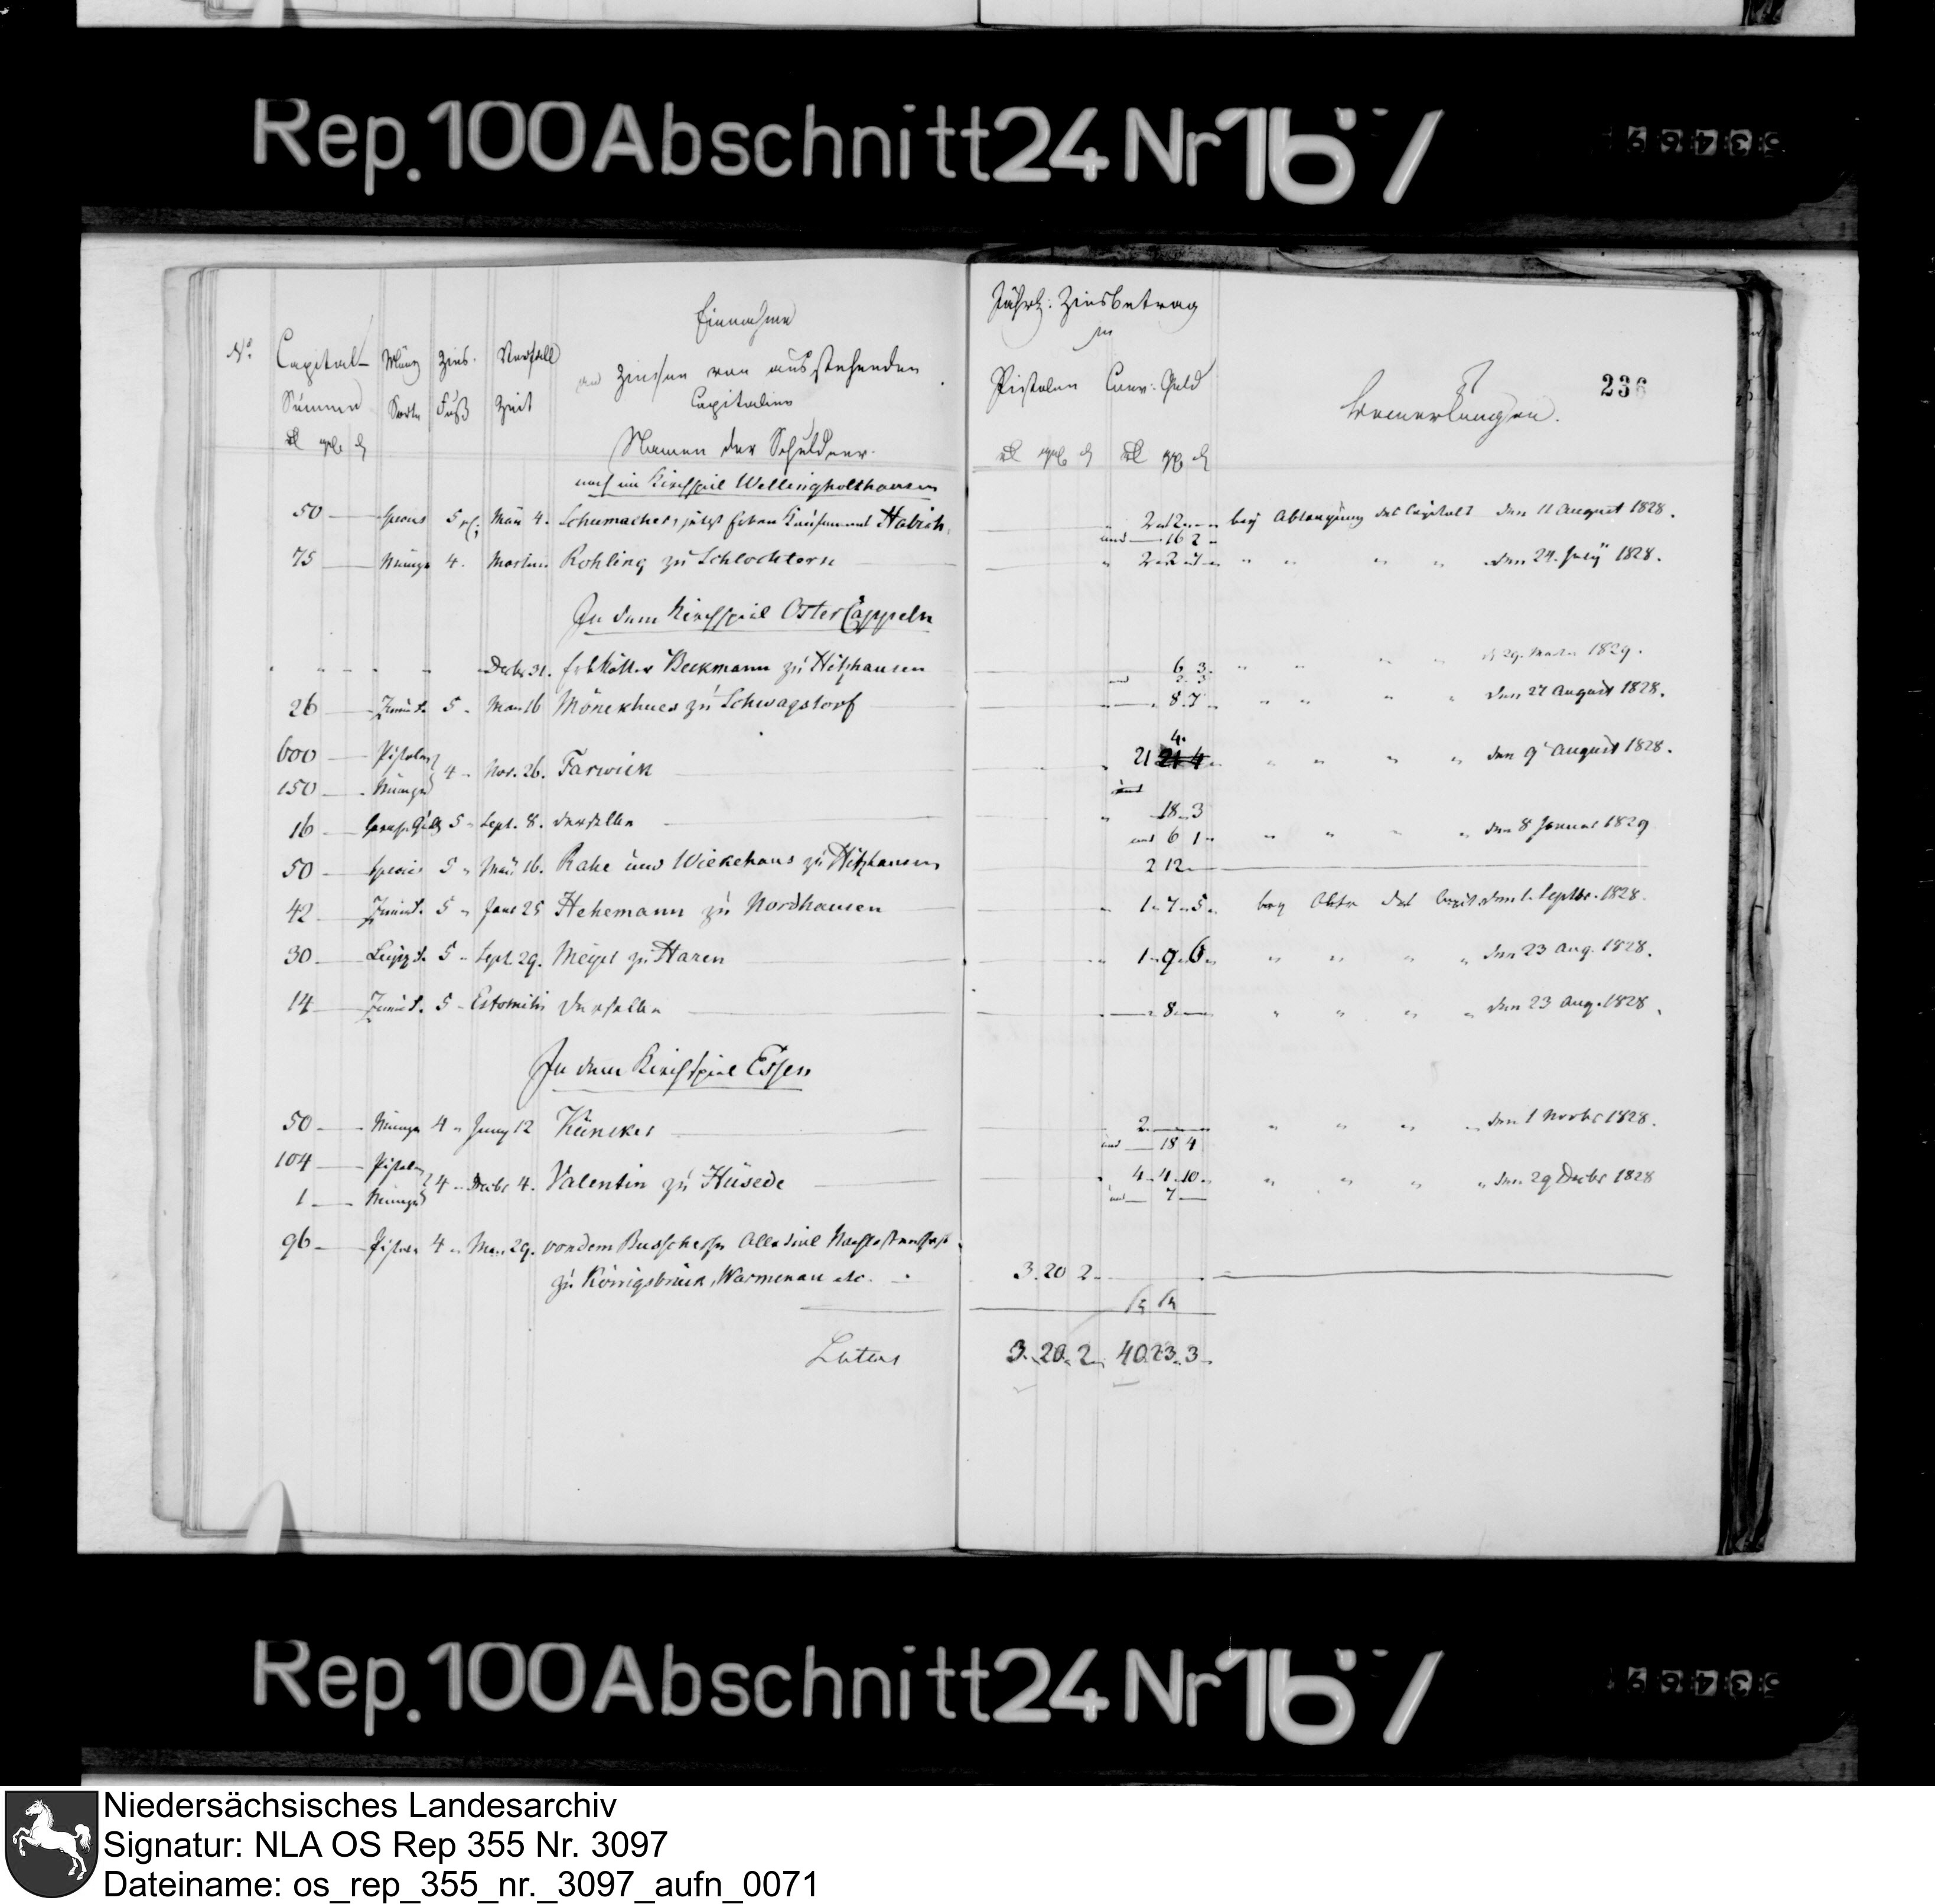 Rep.100 Abschnitt 24 Nr 167
Einnahme
an Zinsen von ausstehenden
Capitalien
Namen der Schuldner.
No. Capital-Summe Münz Sorte Zins-Fuß Verfall Zeit
Jährl: Zinsbetrag
in
Pistolen Conv: Geld
Bemerkungen.
236
noch im Kirchspiel Wellingholthausen
50 — Species 5 Mai 4. Schumacher, jetzt Erben Kaufmann Habich 2 12 bey Ablegung des Capitals den 11 August 1828.
und — 16 2
75 — Münze 4. Martini Rohling zu Schlochtern 2 2 7 " " " " den 24. July 1828.
In dem Kirchspiel OsterCappeln
Decbr 31. Erbkötter Beckmann zu Hitzhausen 6 3 " " " " 1829.
und 2. 3
26 — 5 Mai 16 Mönckhues zu Schwagstorf 8. 7 " " " " den 27 August 1828.
4.
600 — Pistolen
150 — Münze 4 Nov. 26. Farwick 21 21 4 " " " " den 9 August 1828.
und
18. 3
16 — 5 Sept. 8. derselbe und 6 1 " " " " den 8 Januar 1829
50 — Species 5 Mai 16. Rahe und Wiekehaus zu Hitzhausen 2 12
42 — 5 Janr 25 Hehemann zu Nordhausen 1 7 5 bey Ablg des Capit. den 1. Septbr. 1828.
30 — 5 Sept. 29. Meyer zu Haren 1 9 6 " " " " den 23 Aug. 1828.
14 — 5 Estomihi derselbe 8 " " " " den 23 Aug. 1828.
In dem Kirchspiel Essen
50 — Münze 4 Juny 12 Küncker 2 " " " " den 1 Novbr 1828.
und 18 4
104 — Pistolen
1 — Münze 4 Decbr 4. Valentin zu Hüsede 4 4 10 " " " " den 29 Decbr 1828
und 7
96 — Pistolen 4 Mai 29. von dem Bussche
zu Königsbrück, Warmenau etc. 3. 20 2
Latus 3. 20. 2 40 23. 3
Rep.100 Abschnitt 24 Nr 167
Niedersächsisches Landesarchiv
Signatur: NLA OS Rep 355 Nr. 3097
Dateiname: os_rep_355_nr._3097_aufn_0071